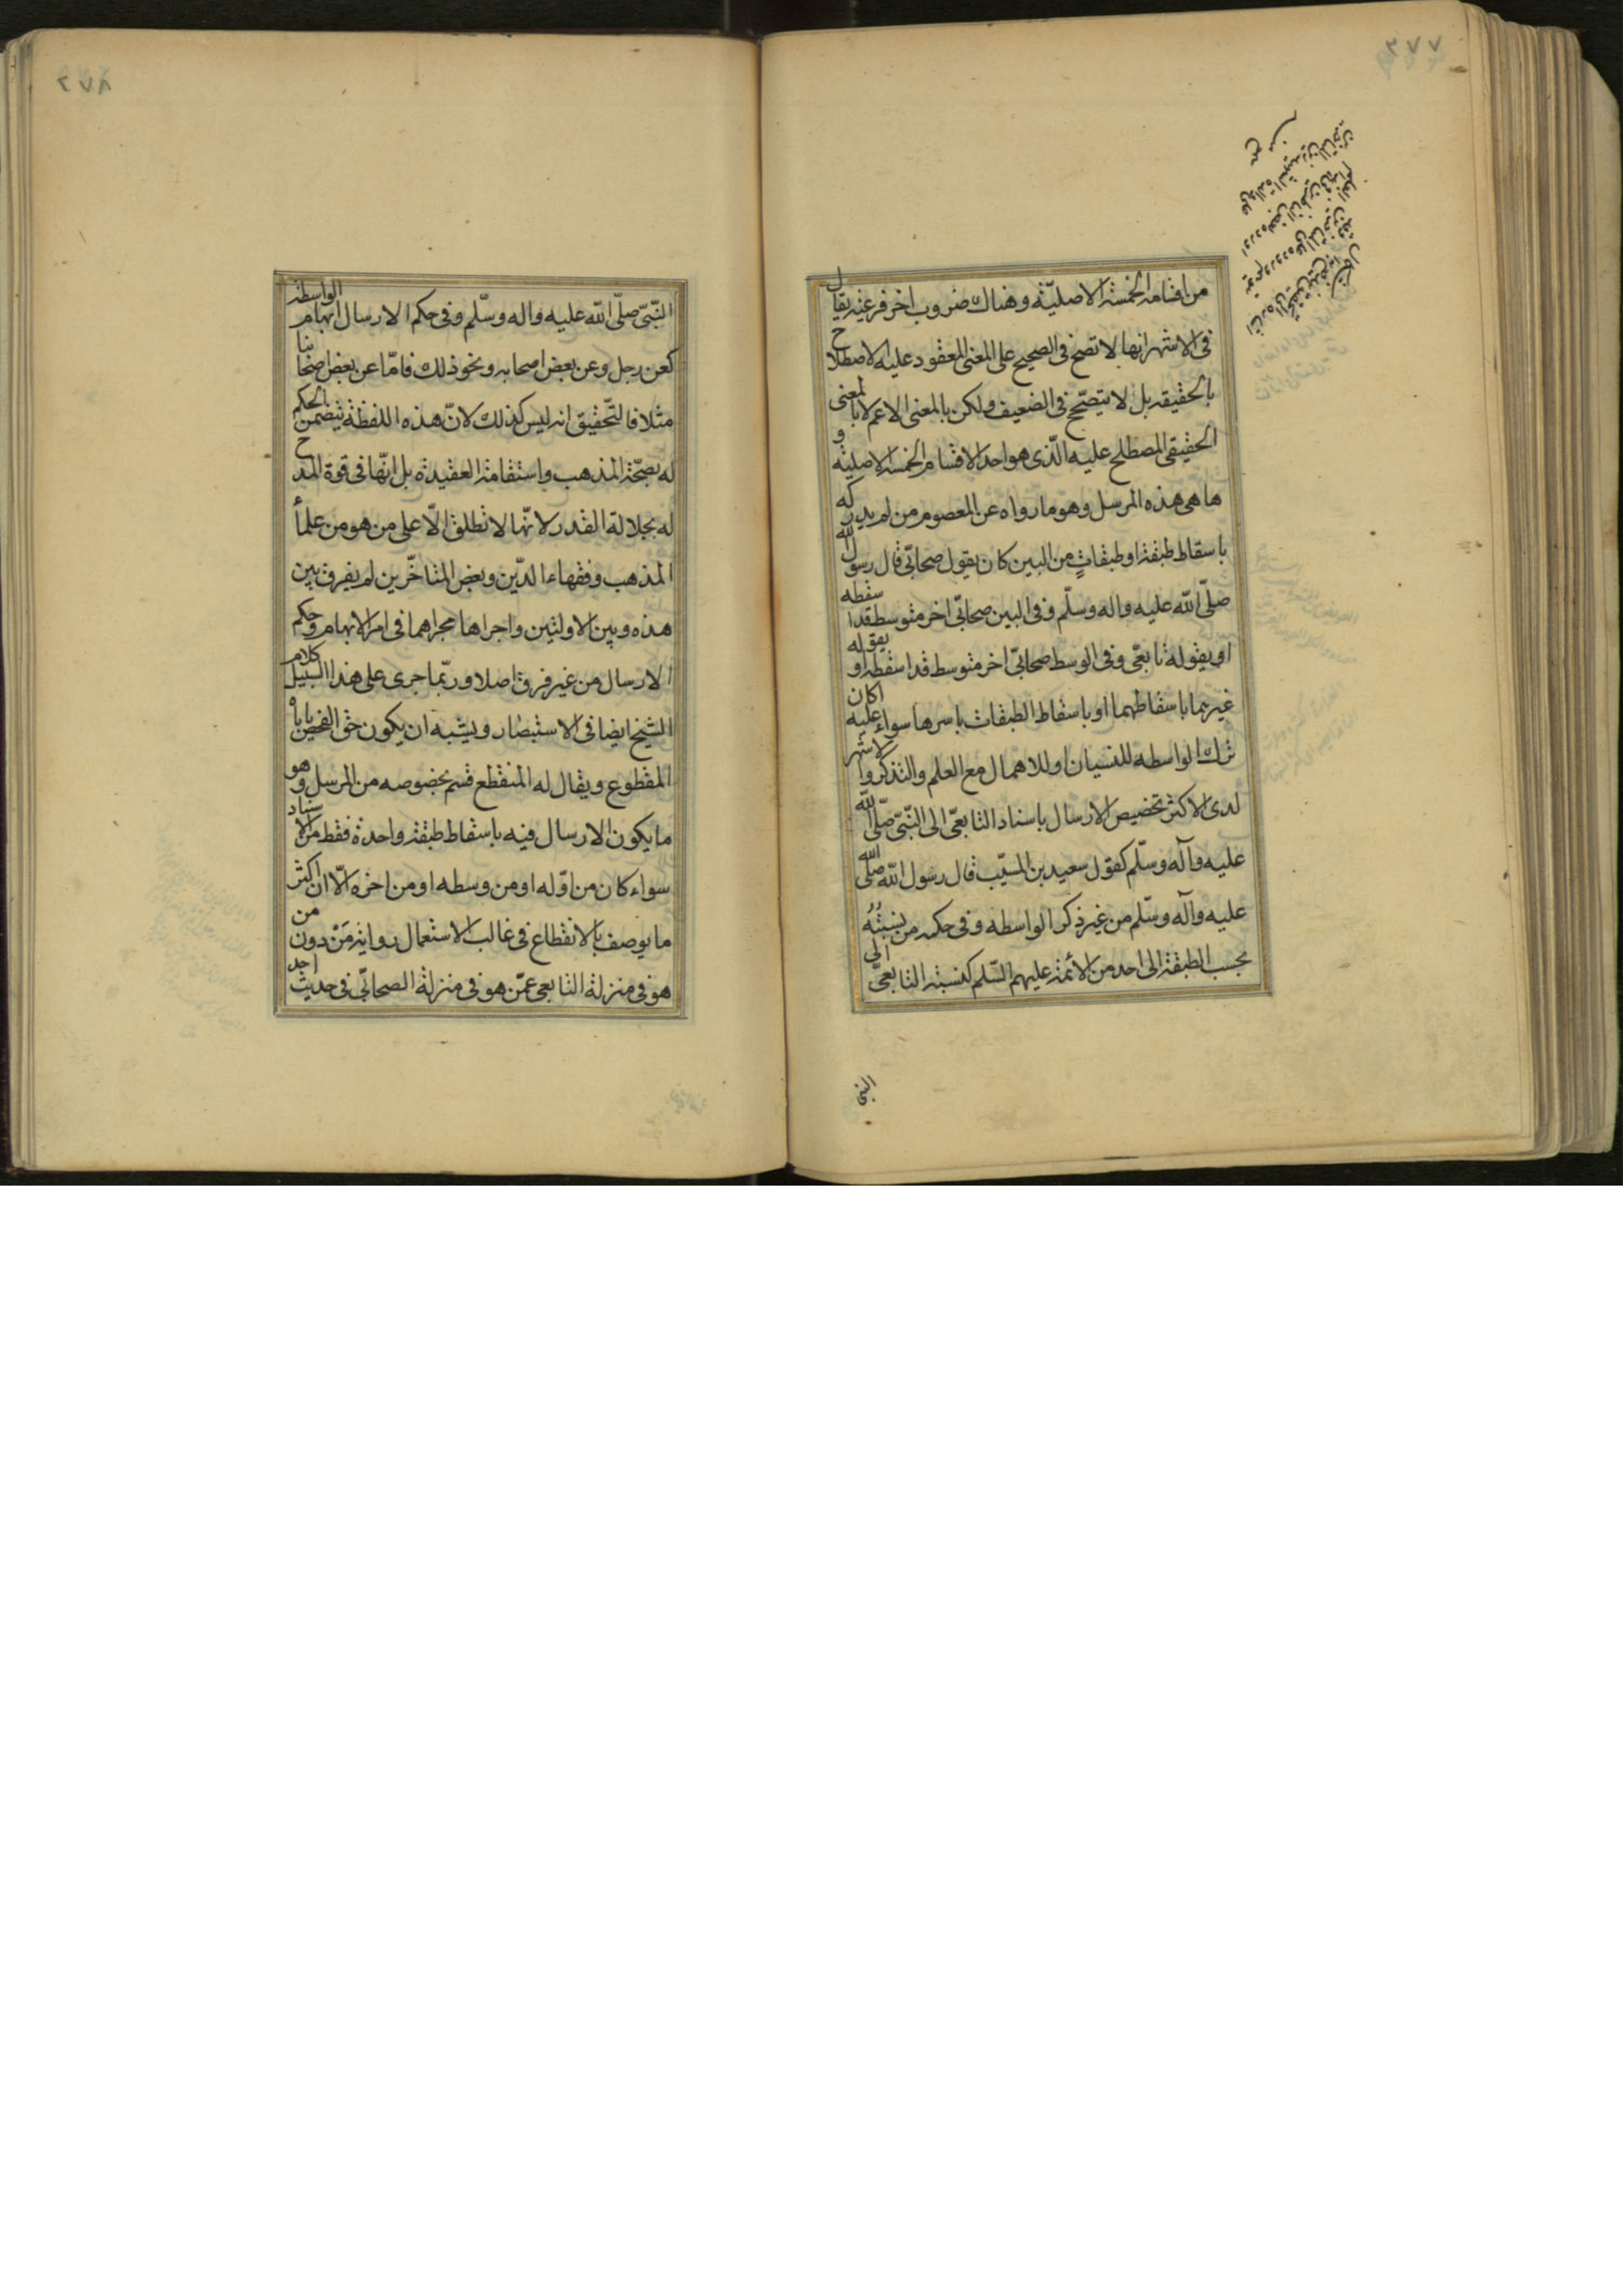 ٢٧٧
من اقسامه الخمسة الاصليّة وهناك ضروب اخر فرعيّة يقال
فى الاشهر انها لا تصح فى الصحيح على المعنى المعقود عليه الاصطلاح
بالحقيقه بل لا يتصحّح فى الضعيف ولكن بالمعنى الاعم لا بالمعنى
الحقيقى المصطلح عليه الّذى هو احد الاقسام الخمسة الاصلية و
ها هى هذه المرسل وهو ما رواه عن المعصوم من لم يدركه
باسقاط طبقة او طبقاتٍ من البين كان يقول صحابّى قال رسول الله
صلّى الله عليه واله وسلّم وفى البين صحابّى اخر متوسط قد اسقطه
او يقوله تابعّى وفى الوسط صحابّى اخر متوسط قد اسقطه او يقوله
غيرهما باسقاطهما او باسقاط الطبقات باسرها سواء عليه اكان
ترك الواسطه للنسيان او للاهمال مع العلم والتذكر والاشهر
لدى الاكثر تخصيص الارسال باسناد التابعّى الى النّبىّ صلّى الله
عليه وآله وسلّم كقول سعيد بن المسيّب قال رسول الله صلى الله
عليه وآله وسلّم من غير ذكر الواسطه وفى حكمه من نسبتُهُ
بحسب الطبقة الى احد من الأئمة عليهم السّلم كنسبة التابعىّ الى
النبى
٢٧٨
النّبىّ صلّى الله عليه واله وسلّم وفى حكم الارسال ابهام الواسطة
كعن رجل وعن بعض اصحابه ونحو ذلك فامّا عن بعض اصحابنا
مثلا فالتّحقيق انه ليس كذلك لانّ هذه اللفظة يتضمن الحكم
له بصحّة المذهب واستقامة العقيدة بل انّها فى قوة المدح
له بجلالة القدر لانّها لا تطلق الّا على من هو من علمأ
المذهب وفقهاء الدّين وبعض المتاخّرين لم يفرق بين
هذه وبين الاوليتن واجراها مجراهما فى امر الابهام وحكم
الارسال من غير فرق اصلا وربّما جرى على هذا السّبيل كلام
الشيخ ايضا فى الاستبصار ويشبه ان يكون حق الفحص ياباه
المقطوع ويقال له المنقطع قسم بخصوصه من المرسل وهو
ما يكون الارسال فيه باسقاط طبقة واحدة فقط من الاسناد
سواء كان من اوّله او من وسطه او من اخره الّا ان اكثر
ما يوصف بالانقطاع فى غالب الاستعمال رواية مَنْ دون من
هو فى منزلة التابعى عمّن هو فى منزلة الصحابّى فى حديث احد